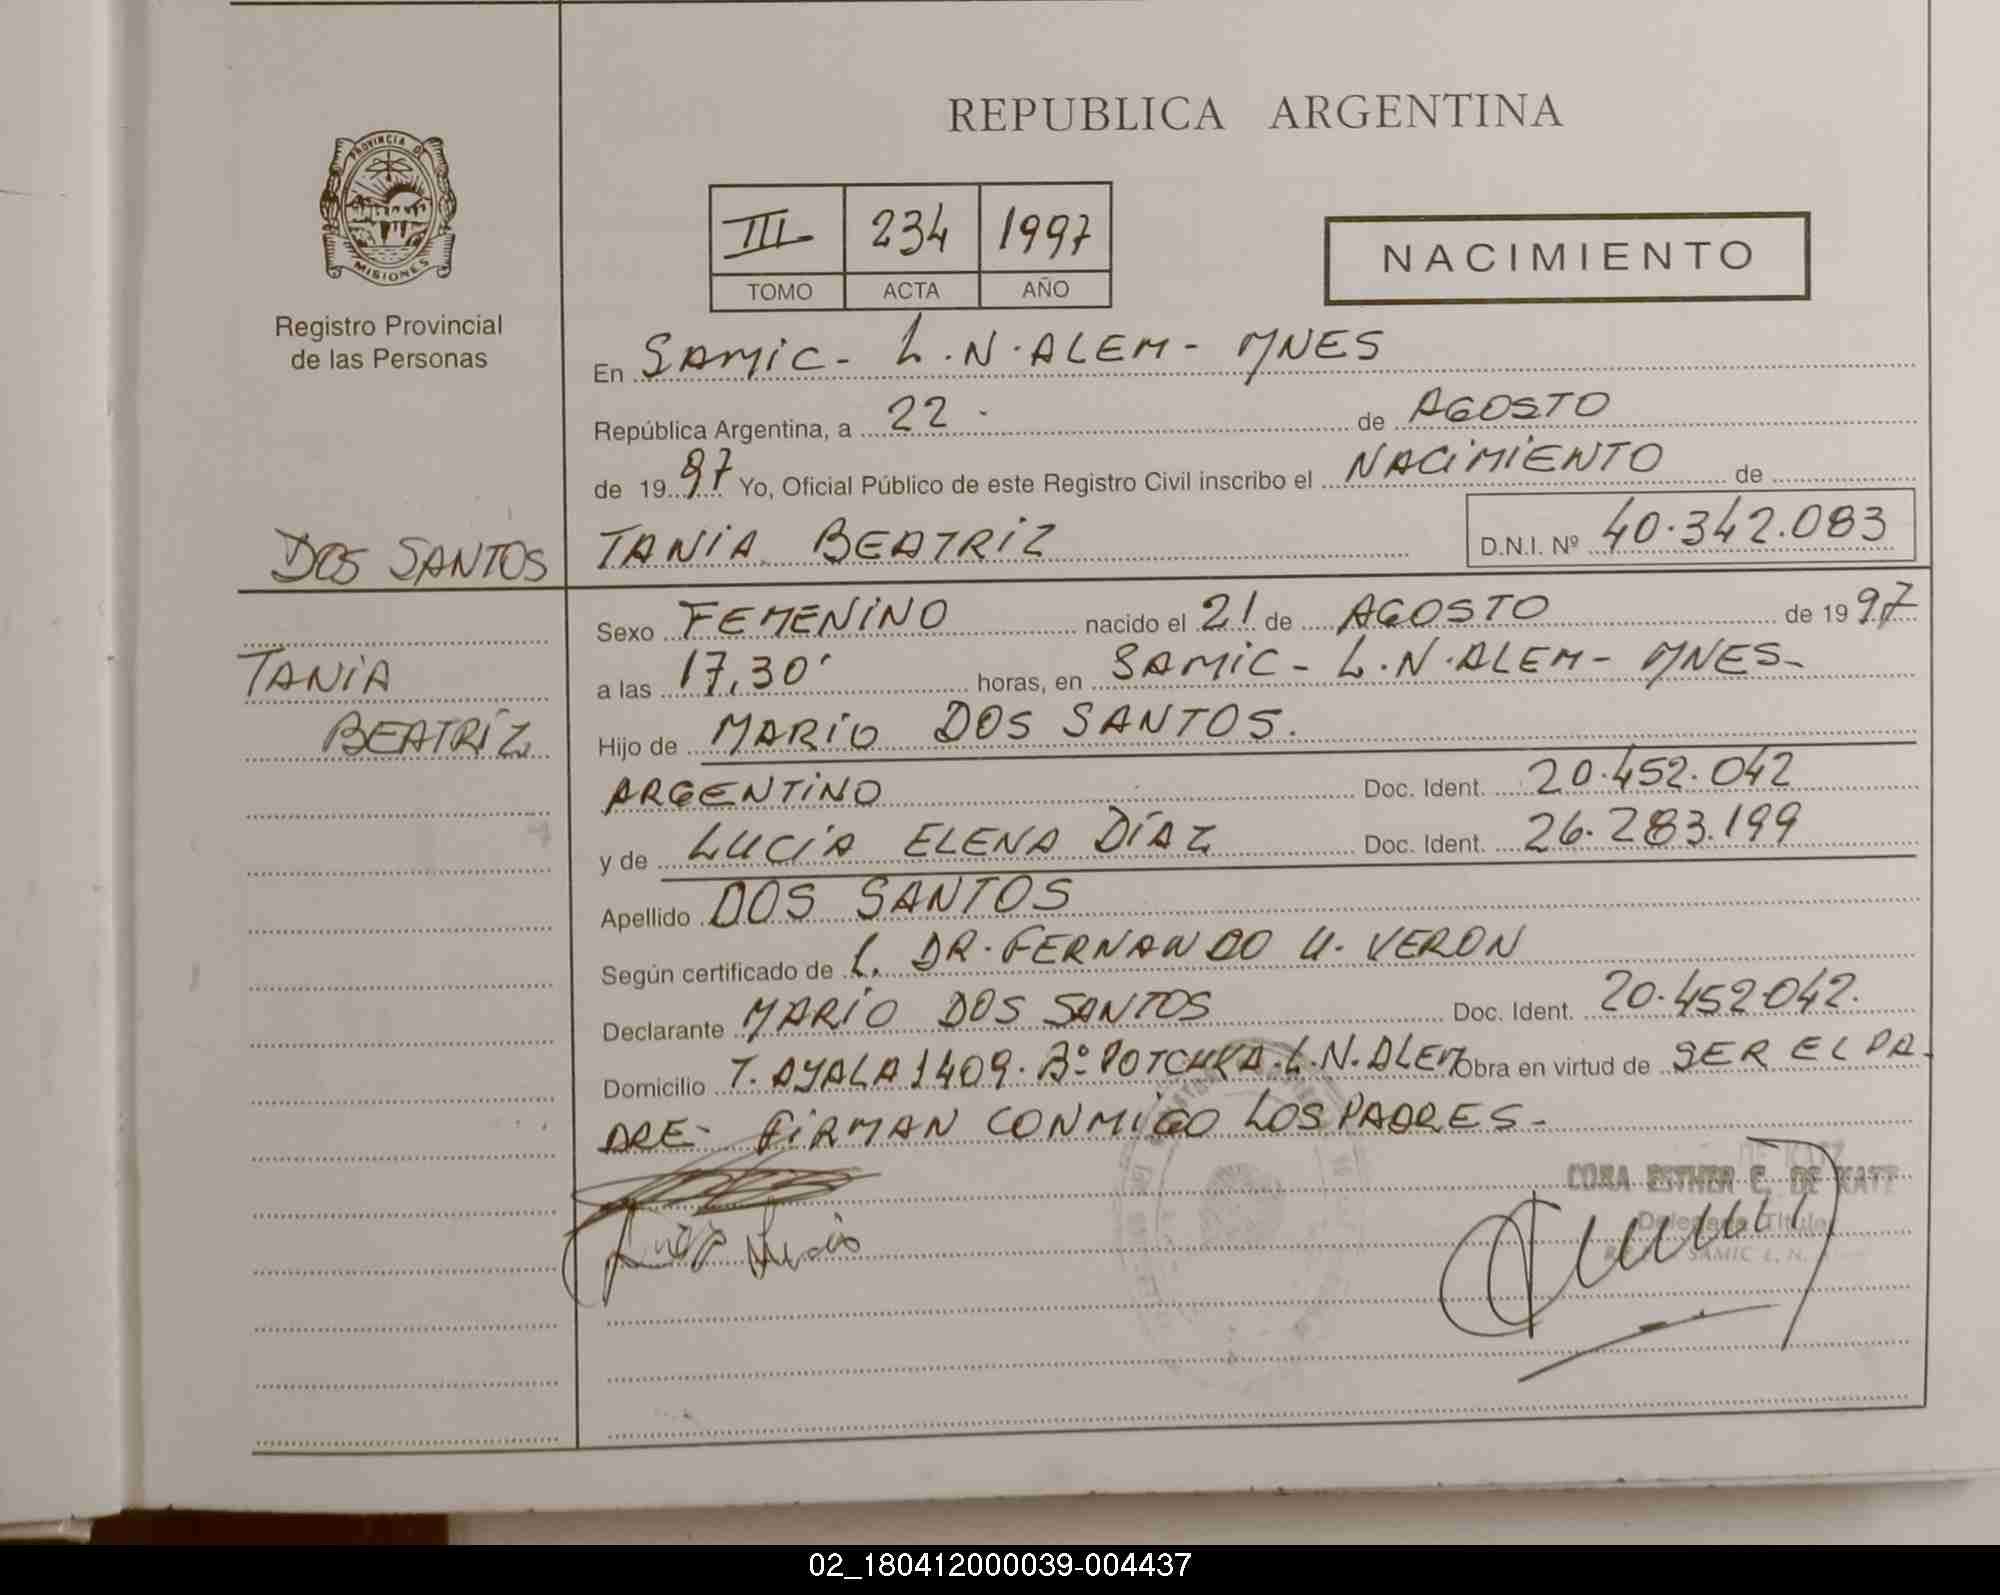 REPUBLICA ARGENTINA
PROVINCIA DE
MISIONES
Registro Provincial
de las Personas
III 234 1997
TOMO ACTA AÑO
NACIMIENTO
En SAMIC - L.N. ALEM - MNES
República Argentina, a 22 de AGOSTO
de 1997 Yo, Oficial Público de este Registro Civil inscribo el NACIMIENTO de
DOS SANTOS
TANIA BEATRIZ D.N.I. Nº 40.342.083
TANIA
BEATRIZ
Sexo FEMENINO nacido el 21 de AGOSTO de 1997
a las 17,30' horas, en SAMIC - L.N. ALEM - MNES-
Hijo de MARIO DOS SANTOS.
ARGENTINO Doc. Ident. 20.452.042
y de LUCIA ELENA DÍAZ Doc. Ident. 26.283.199
Apellido DOS SANTOS
Según certificado de L. DR. FERNANDO U. VERON
Declarante MARIO DOS SANTOS Doc. Ident. 20.452.042.
Domicilio T. AYALA 1409. Bº L.N. ALEM Obra en virtud de SER EL PA-
DRE- FIRMAN CONMIGO LOS PADRES-
CORA ESTHER E. DE
Delegada Titular
SAMIC L. N.
02_180412000039-004437